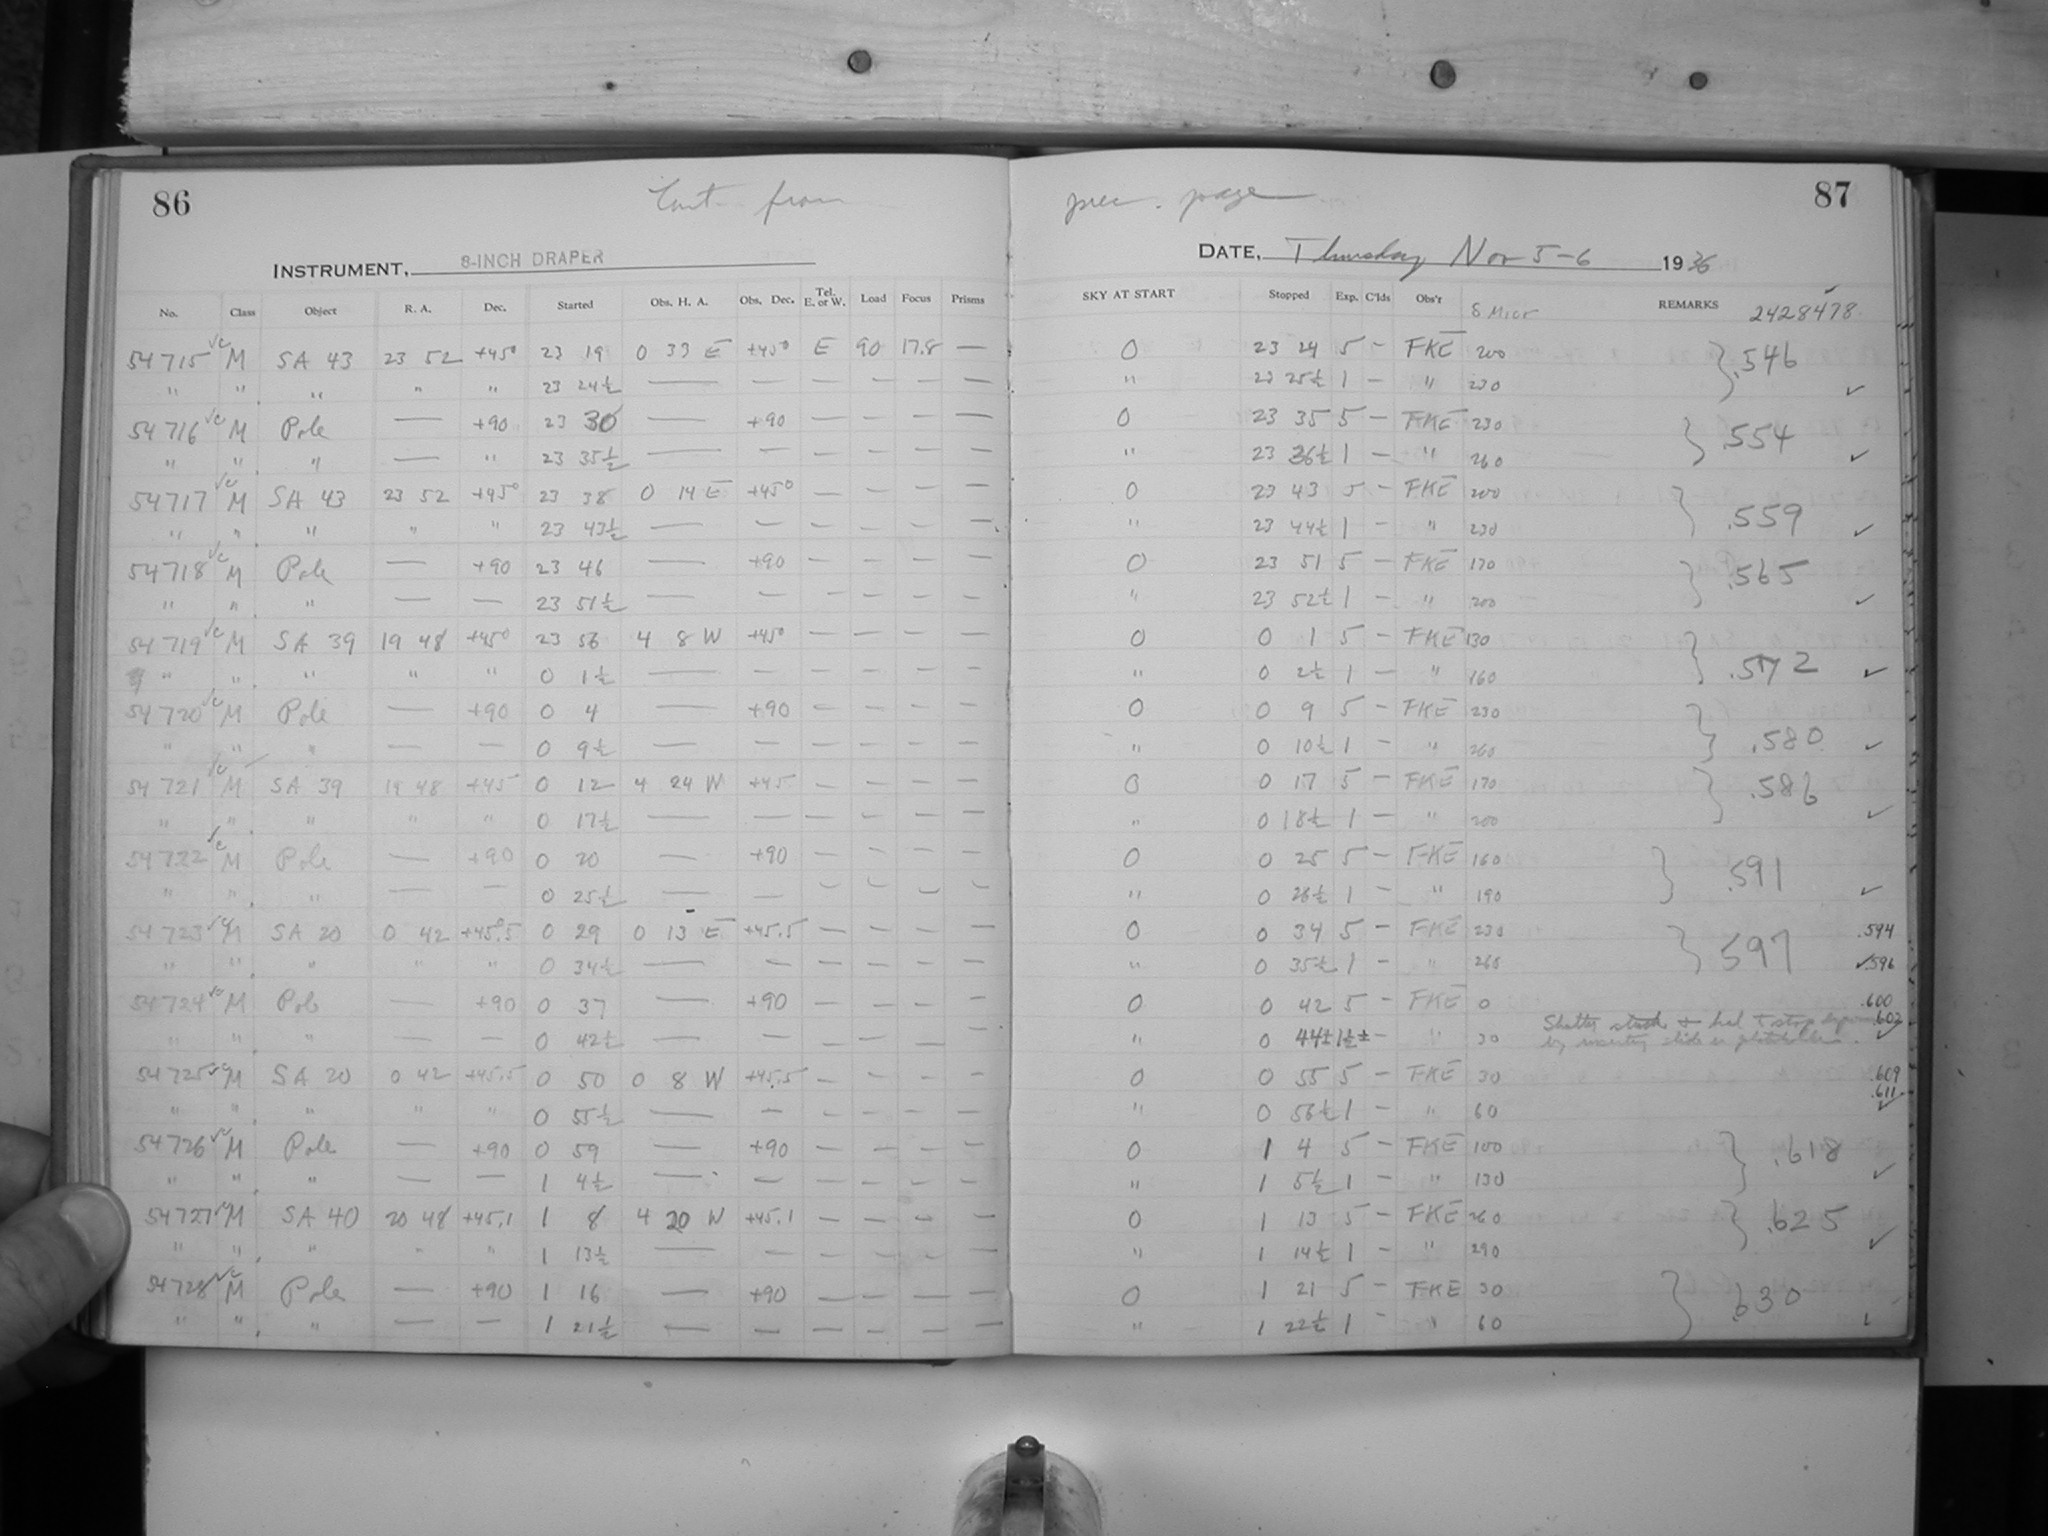 86
Cont. from prec. page
87
INSTRUMENT, 8-INCH DRAPER
DATE, Thursday Nov 5-6 1936
No. Class Object R. A. Dec. Started Obs. H. A. Obs. Dec. Tel. E. or W. Load Focus Prisms SKY AT START Stopped Exp. C'lds Obs'r δ Micr REMARKS 2428478
54715 M SA 43 23 52 +45° 23 19 0 33 E +45° E 90 17.8 — 0 23 24 5 — FKE 200 .546
" " " " " 23 24½ — — — — — — " 23 25½ 1 — " 230 ✓
54716 M Pole — +90 23 30 — +90 — — — — 0 23 35 5 — FKE 230 .554
" " " — " 23 35½ — — — — — — " 23 36½ 1 — " 260 ✓
54717 M SA 43 23 52 +45° 23 38 0 14 E +45° — — — — 0 23 43 5 — FKE 200 .559
" " " " " 23 43½ — — — — — — " 23 44½ 1 — " 230 ✓
54718 M Pole — +90 23 46 — +90 — — — — 0 23 51 5 — FKE 170 .565
" " " — — 23 51½ — — — — — — " 23 52½ 1 — " 200 ✓
54719 M SA 39 19 48 +45° 23 56 4 8 W +45° — — — — 0 0 1 5 — FKE 130 .572
" " " " " 0 1½ — — — — — — " 0 2½ 1 — " 160 ✓
54720 M Pole — +90 0 4 — +90 — — — — 0 0 9 5 — FKE 230 .580
" " " — — 0 9½ — — — — — — " 0 10½ 1 — " 260 ✓
54721 M SA 39 19 48 +45 0 12 4 24 W +45 — — — — 0 0 17 5 — FKE 170 .586
" " " " " 0 17½ — — — — — — " 0 18½ 1 — " 200 ✓
54722 M Pole — +90 0 20 — +90 — — — — 0 0 25 5 — FKE 160 .591
" " " — — 0 25½ — — — — — — " 0 26½ 1 — " 190 ✓
54723 M SA 20 0 42 +45.5 0 29 0 13 E +45.5 — — — — 0 0 34 5 — FKE 230 .597 .594
" " " " " 0 34½ — — — — — — " 0 35½ 1 — " 260 ✓ .596
54724 M Pole — +90 0 37 — +90 — — — — 0 0 42 5 — FKE 0 .600
" " " — — 0 42½ — — — — — — " 0 44± 1½± — " 30 Shutter stuck & had to stop .602 ✓
by inserting slide in plateholder.
54725 M SA 20 0 42 +45.5 0 50 0 8 W +45.5 — — — — 0 0 55 5 — FKE 30 .609
" " " " " 0 55½ — — — — — — " 0 56½ 1 — " 60 .611 ✓
54726 M Pole — +90 0 59 — +90 — — — — 0 1 4 5 — FKE 100 .618
" " " — — 1 4½ — — — — — — " 1 5½ 1 — " 130 ✓
54727 M SA 40 20 48 +45.1 1 8 4 20 W +45.1 — — — — 0 1 13 5 — FKE 260 .625
" " " " " 1 13½ — — — — — — " 1 14½ 1 — " 290 ✓
54728 M Pole — +90 1 16 — +90 — — — — 0 1 21 5 — FKE 30 .630
" " " — — 1 21½ — — — — — — " 1 22½ 1 — " 60 ✓